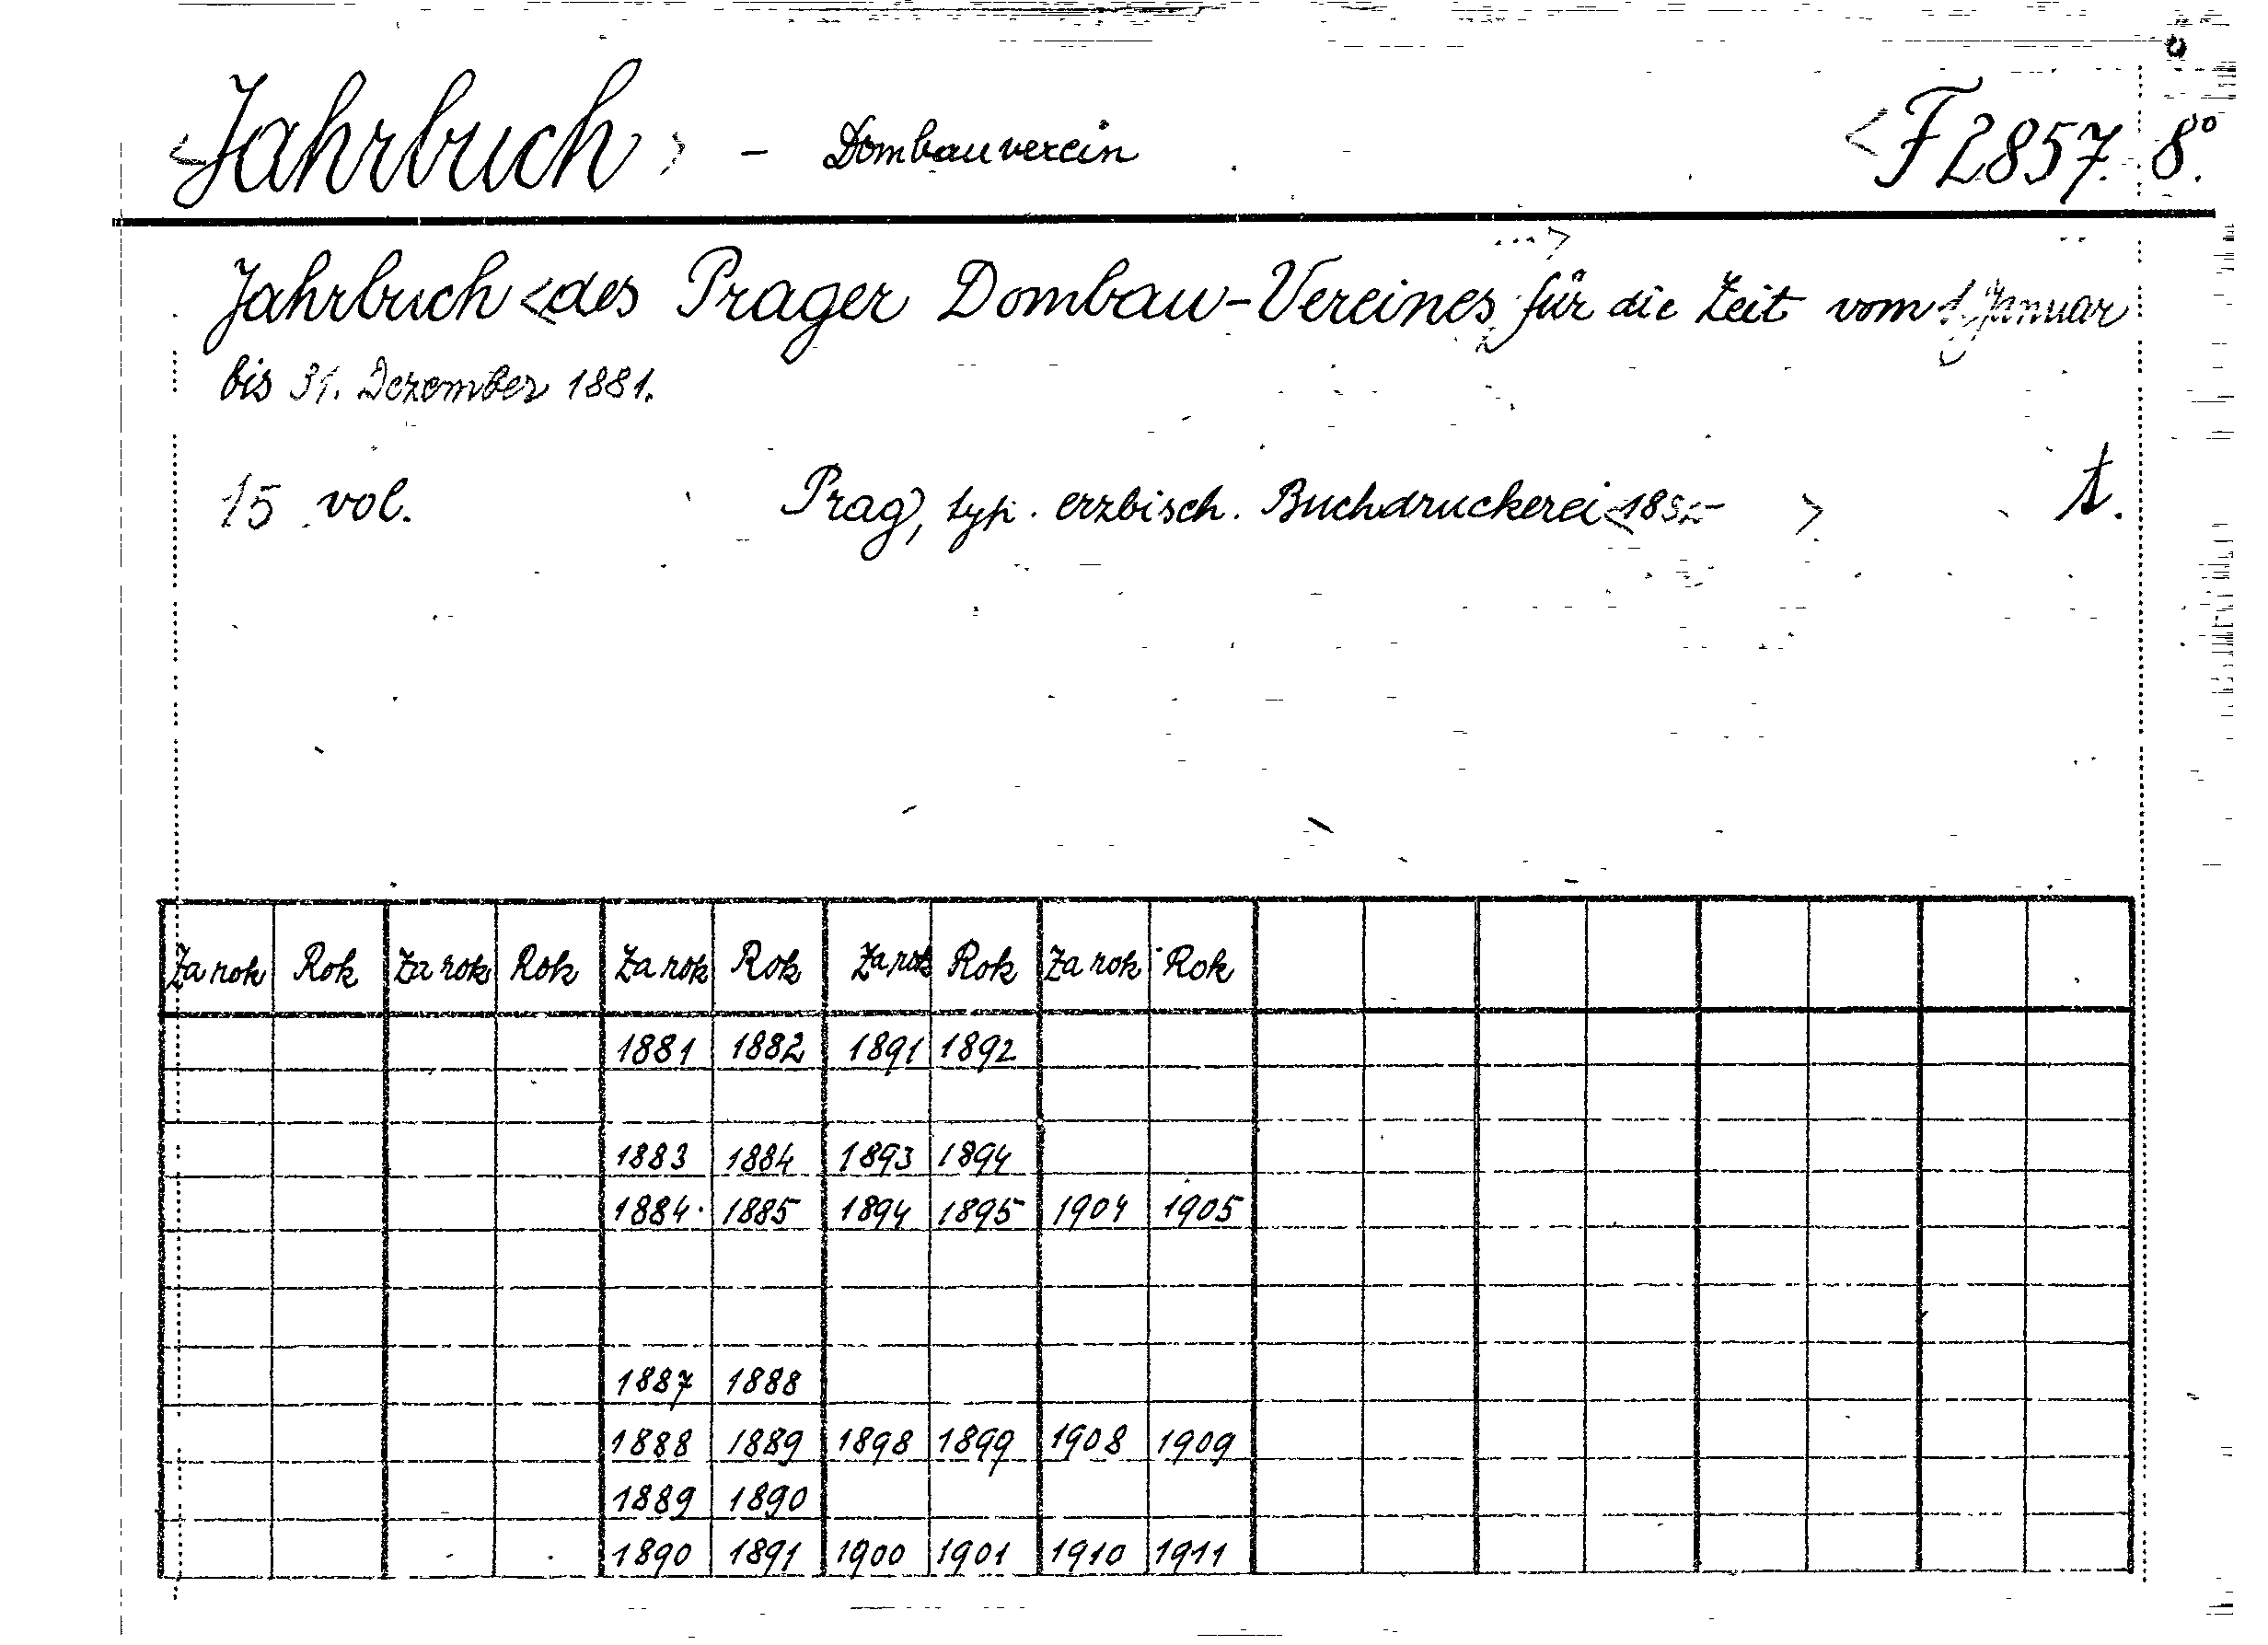 <Jahrbuch> - Dombauverein <F 2857. 8°.
Jahrbuch <des Prager Dombau-Vereines ...> für die Zeit vom 1. Januar
bis 31. Dezember 1881.
15 vol. Prag, typ. erzbisch. Buchdruckerei <1882- > t.
Za rok Rok Za rok Rok Za rok Rok Za rok Rok Za rok Rok
1881 1882 1891 1892
1883 1884 1893 1894
1884 1885 1894 1895 1904 1905
1887 1888
1888 1889 1898 1899 1908 1909
1889 1890
1890 1891 1900 1901 1910 1911